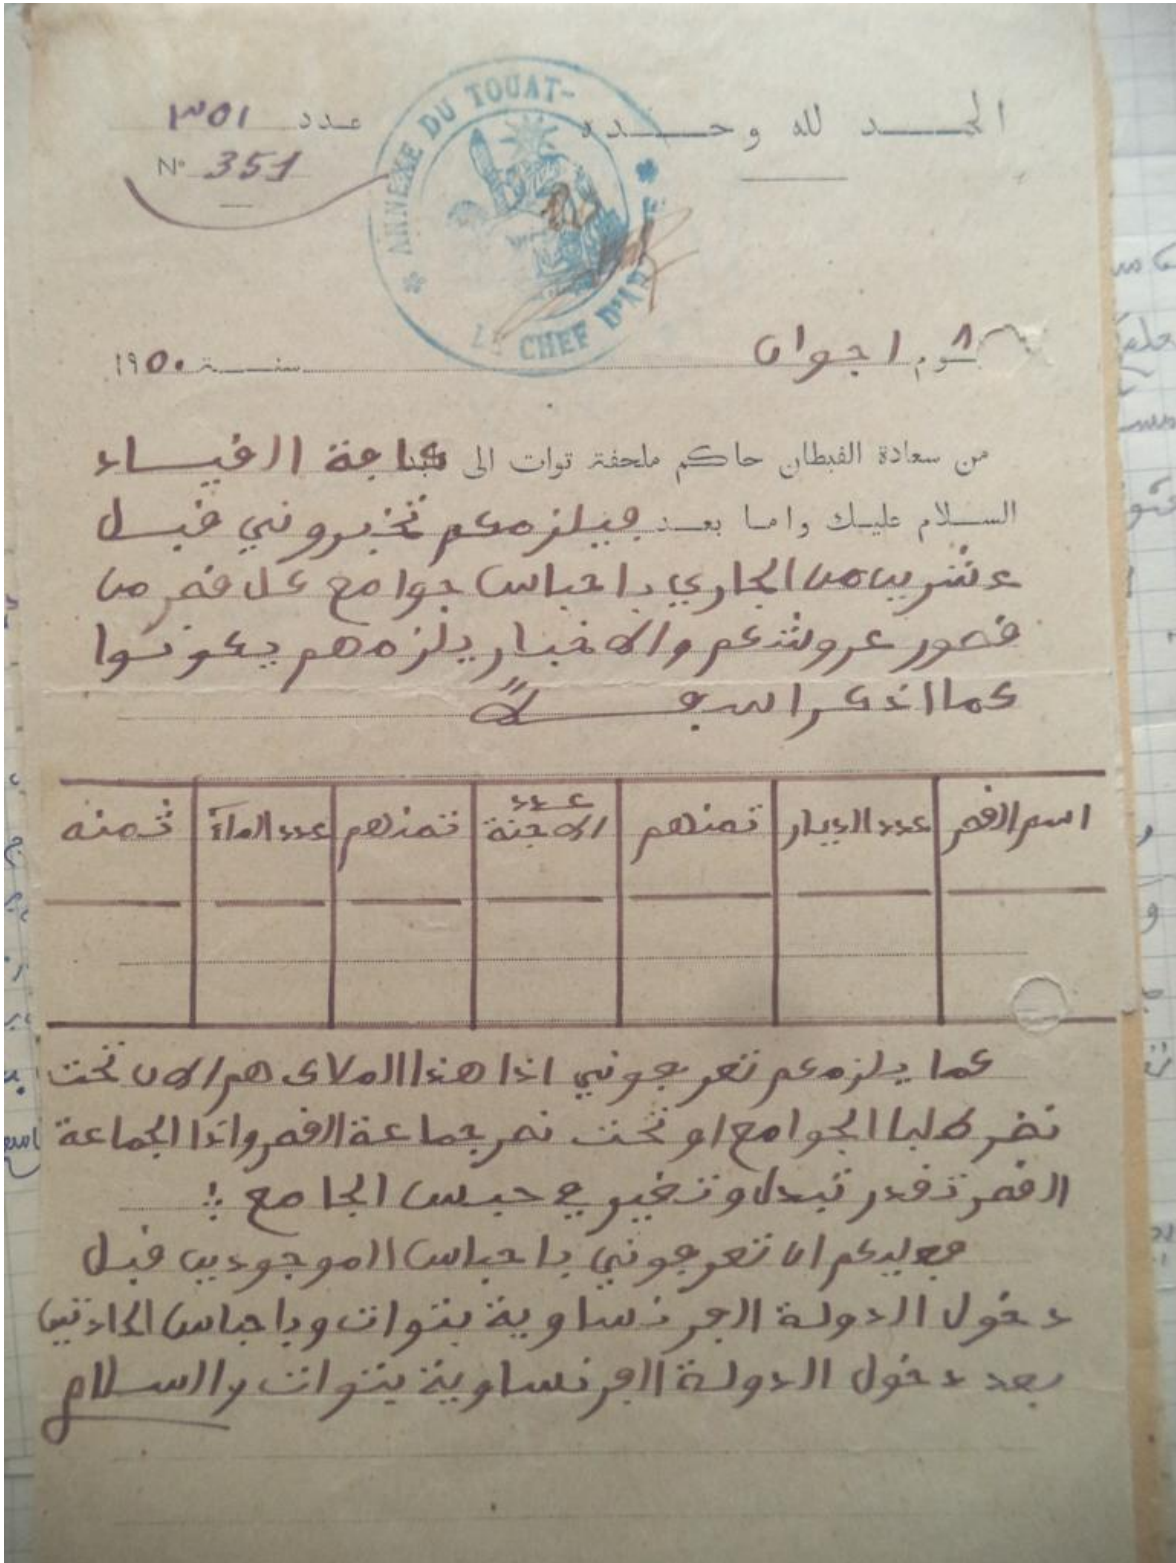 الحمد لله وحده
عدد ٣٥١
N° 351
ANNEXE DU TOUAT
LE CHEF D'AN
يوم ٨ جوان سنة ١٩٥٠
من سعادة الفبطان حاكم ملحفة توات الى كاجة الفياد
السلام عليك واما بعد فيلزمكم تخبروني فبل
عشرين من الجاري باحباس جوامع كل فصر من
فصور عروشكم والاخبار يلزمهم يكونوا
كما اذكر اسفلاً
اسم الفصر | عدد الديار | تمنهم | عدد الاجنة | تمنهم | عدد المآء | ثمنه
كما يلزمكم تعرفوني اذا هذا الملاك هم الان تحت
نضر طلبا الجوامع او تحت نضر جماعة الفصر واذا الجماعة
الفصر تفدر تبدل وتغير في حبس الجامع
فعليكم ان تعرفوني باحباس الموجودين فبل
دخول الدولة الفرنساوية بتوات وباحباس الحادثين
بعد دخول الدولة الفرنساوية بتوات والسلام